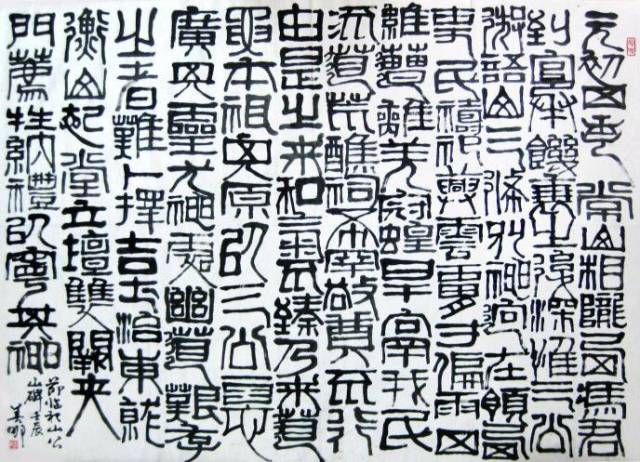 元初四年常山相隴西馮君
到官承饑衰之後深惟三公
御語山三條別神迥在領西
吏民禱祀興雲膚寸偏雨四
維遭離羌寇蝗旱鬲我民
流道荒醮祠希罕敬奠不行
由是之來和氣不臻乃來道
要本祖其原以三公德
廣其靈尤神處幽道艱存
之者難卜擇吉土治東就
衡山起堂立壇雙闕夾
門薦牲納禮以寧其神
節臨祀山公
山碑壬辰